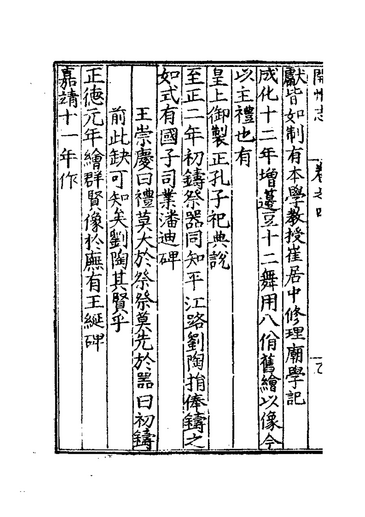 開州志 卷之四
獻皆如制有本學教授崔居中修理廟學記
成化十二年增籩豆十二舞用八佾舊繪以像今
以主禮也有
皇上御製正孔子祀典說
至正二年初鑄祭器同知平江路劉陶捐俸鑄之
如式有國子司業潘迪碑
王崇慶曰禮莫大於祭祭莫先於器曰初鑄
前此缺可知矣劉陶其賢乎
正德元年繪群賢像於廡有王綖碑
嘉靖十一年作